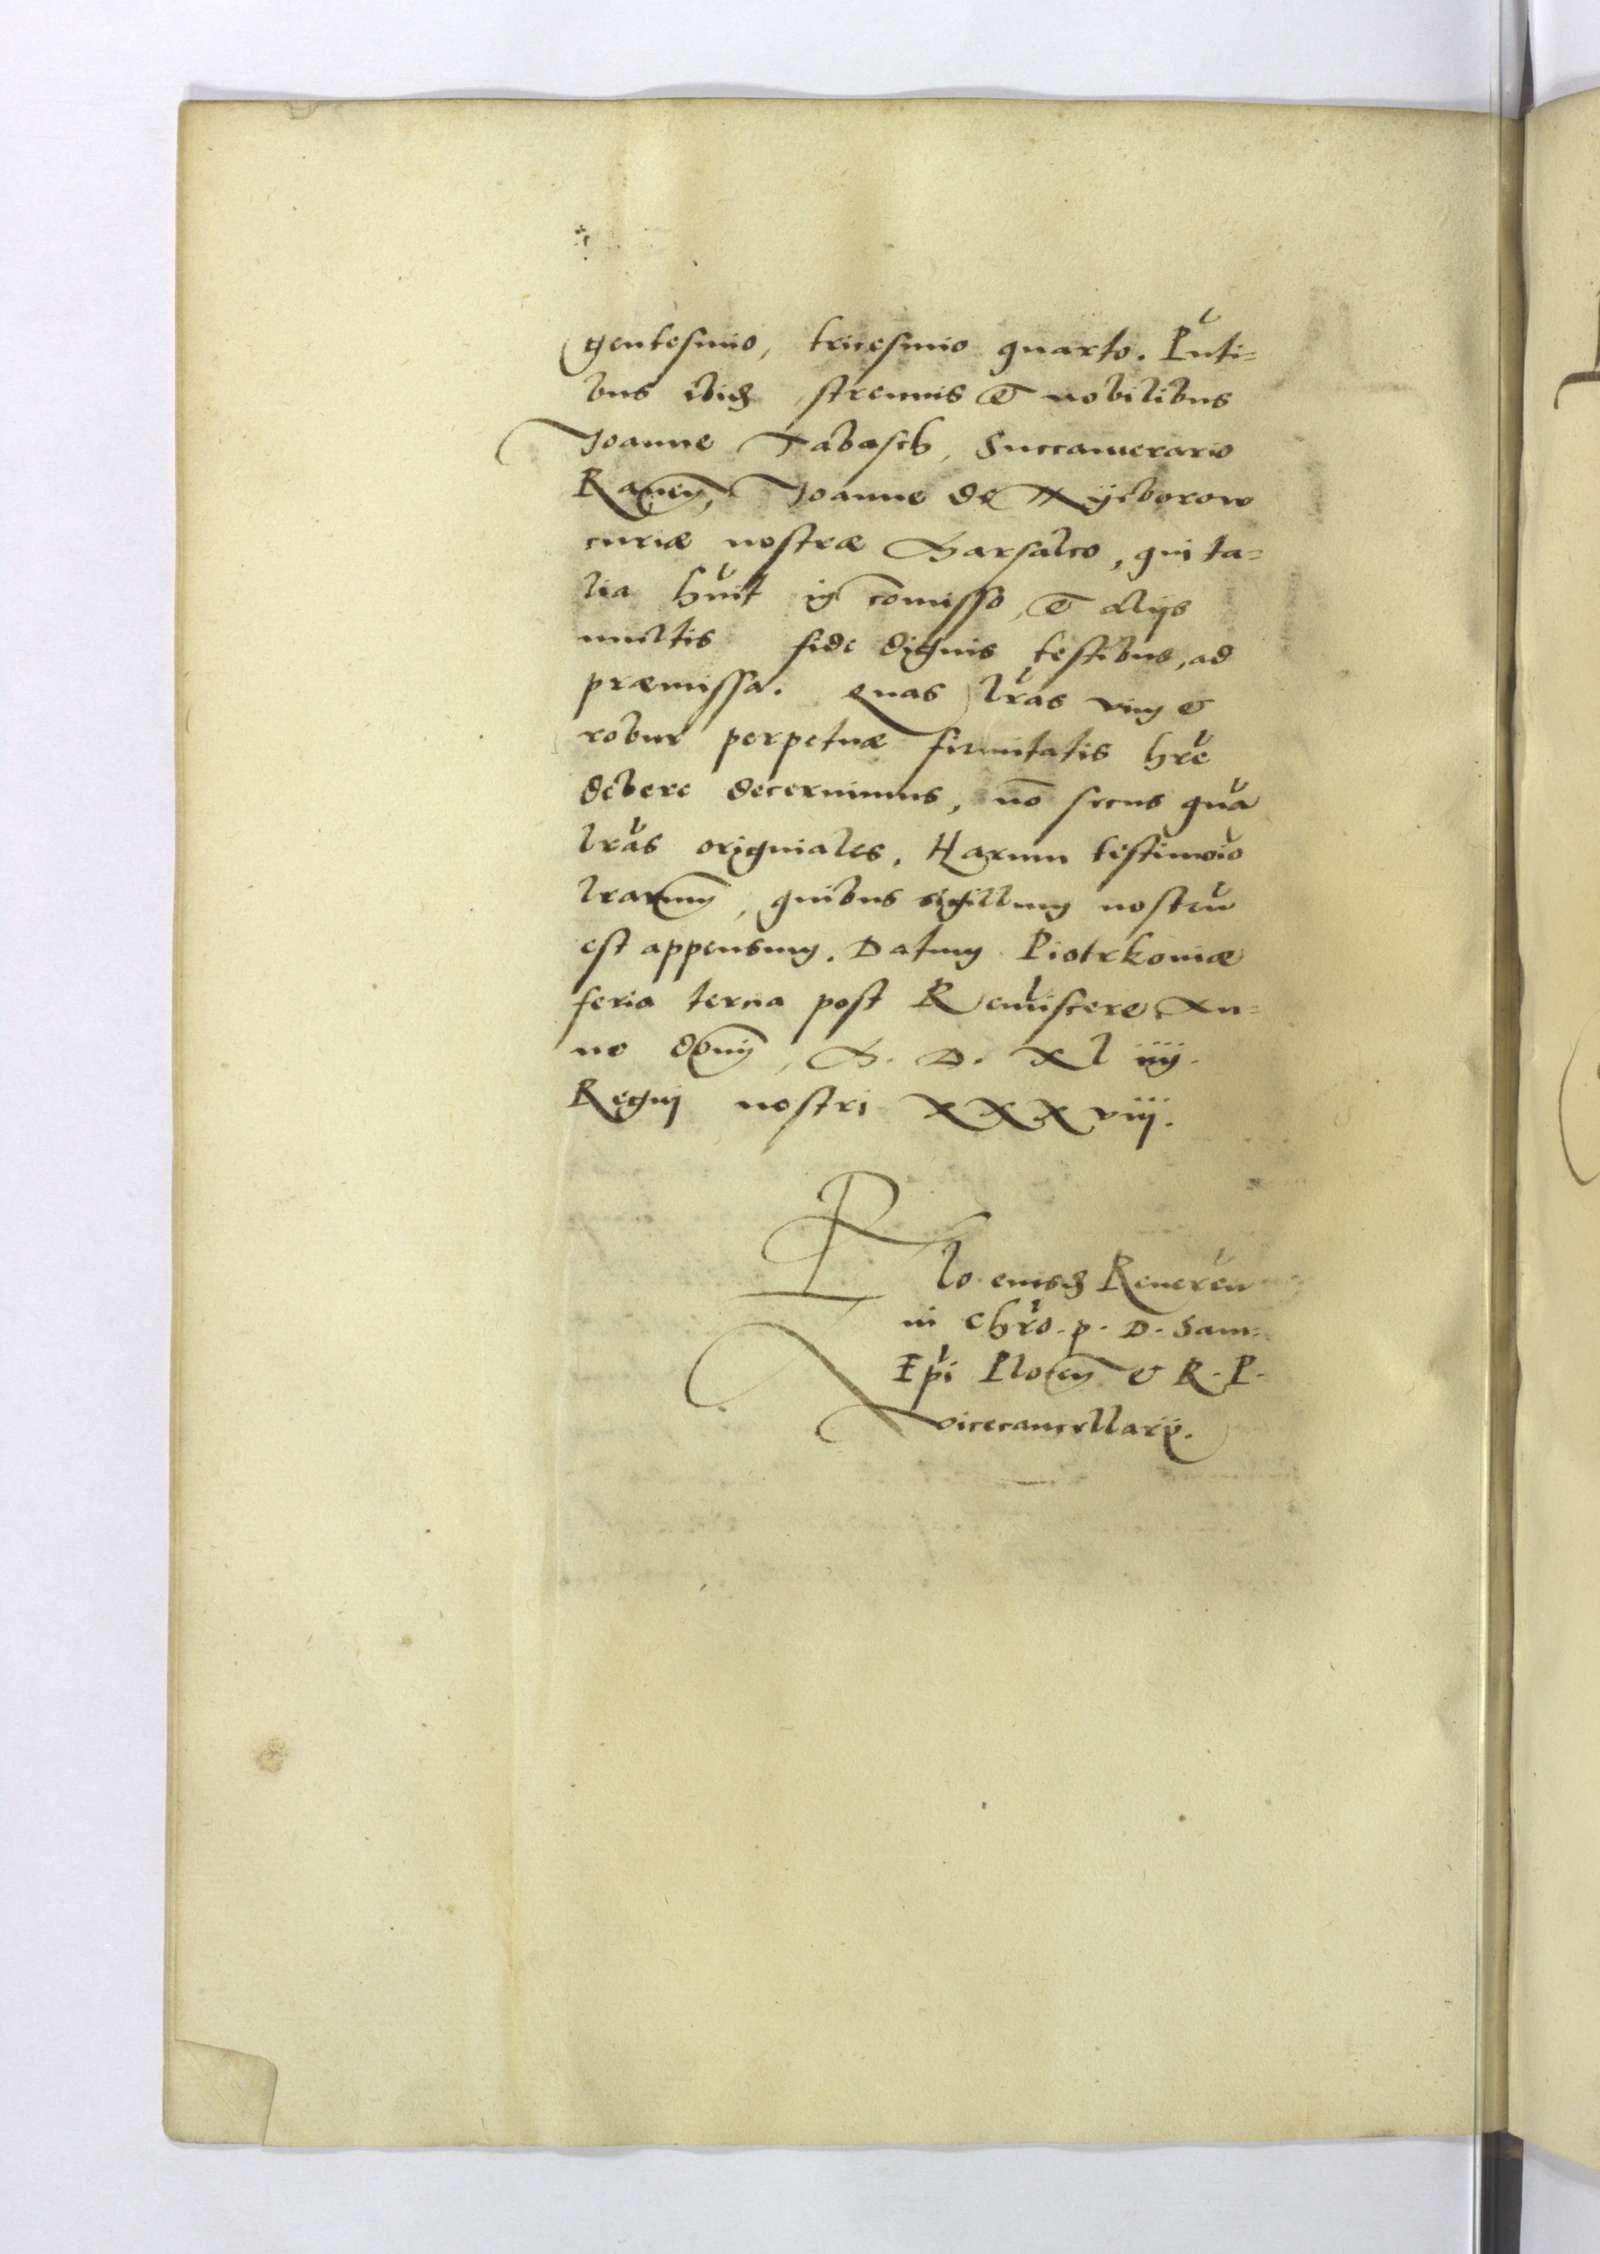 gentesimo, tricesimo quarto. Pnti=
bus ibid. strenuis et nobilibus
Joanne Tabasch, Succamerario
Raven, Joanne de Wycborow
curiæ nostræ Marsalco, qui ta=
lia huit in comisso, et alijs
multis fide dignis testibus, ad
præmissa. quas lras vim et
robur perpetuæ firmitatis hre
debere decernimus, no secus qua
lras originales. Harum testimoio
lrarum, quibus sigillum nostru
est appensum. Datum Piotrkoviæ
feria tercia post Reminscere, An=
no domi, M. D. Xl iiij.
Regni nostri XXX viij.
Rlo eiusd Reveren
in Chro. p. D. Sam=
Epi Plocen et R. P.
vicecancellarij.